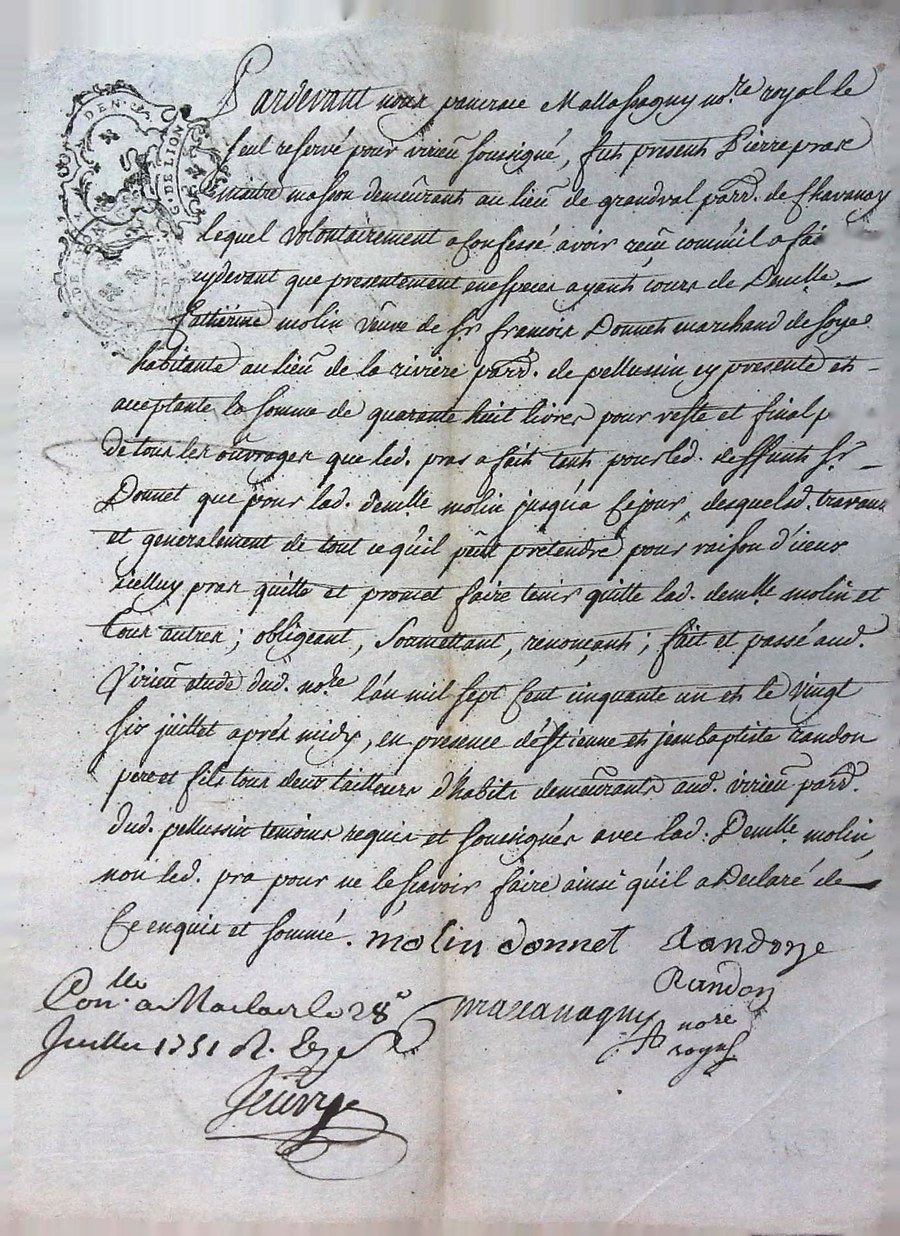 DEN
G. DE LION
Pardevant nous pancrace no.re royal le
seul reservé pour virieu soussigné, fut present Pierre pras
maitre masson demeurant au lieu de grandval parr. de Chavanay
lequel volontairement a confessé avoir reçu comm'il a fai
cydevant que presentement en especes ayant cours de Demlle
Catherine molin veuve de Sr. francois Donnet marchand de soye
habitante au lieu de la riviere parr. de pellussin cy presente et
acceptante la somme de quarante huit livres pour reste et final p
de tous les ouvrages que led. pras a fait tant pour led. deffunt Sr.
Donnet que pour lad. demlle molin jusqu'a ce jour, desquels d. travaux
et generalement de tout ce qu'il peut pretendre pour raison d'iceux
icelluy pras quitte et promet faire tenir quitte lad. demlle molin et
tous autres; obligeant, soumettant, renonçant; fait et passé aud.
Virieu etude dud. no.re l'an mil sept cent cinquante un et le vingt
six juillet aprés midy, en presence d'Estienne et jean baptiste randon
pere et fils tous deux tailleurs d'habits demeurants aud. virieu parr.
dud. pellussin temoins requis et soussignés avec lad. Demlle molin,
non led. pra pour ne le sçavoir faire ainsi qu'il a declaré de
ce enquis et sommé. molin donnet
Randon
Con.lle a Maclas le 28e
no.re
Juillet 1751
royal